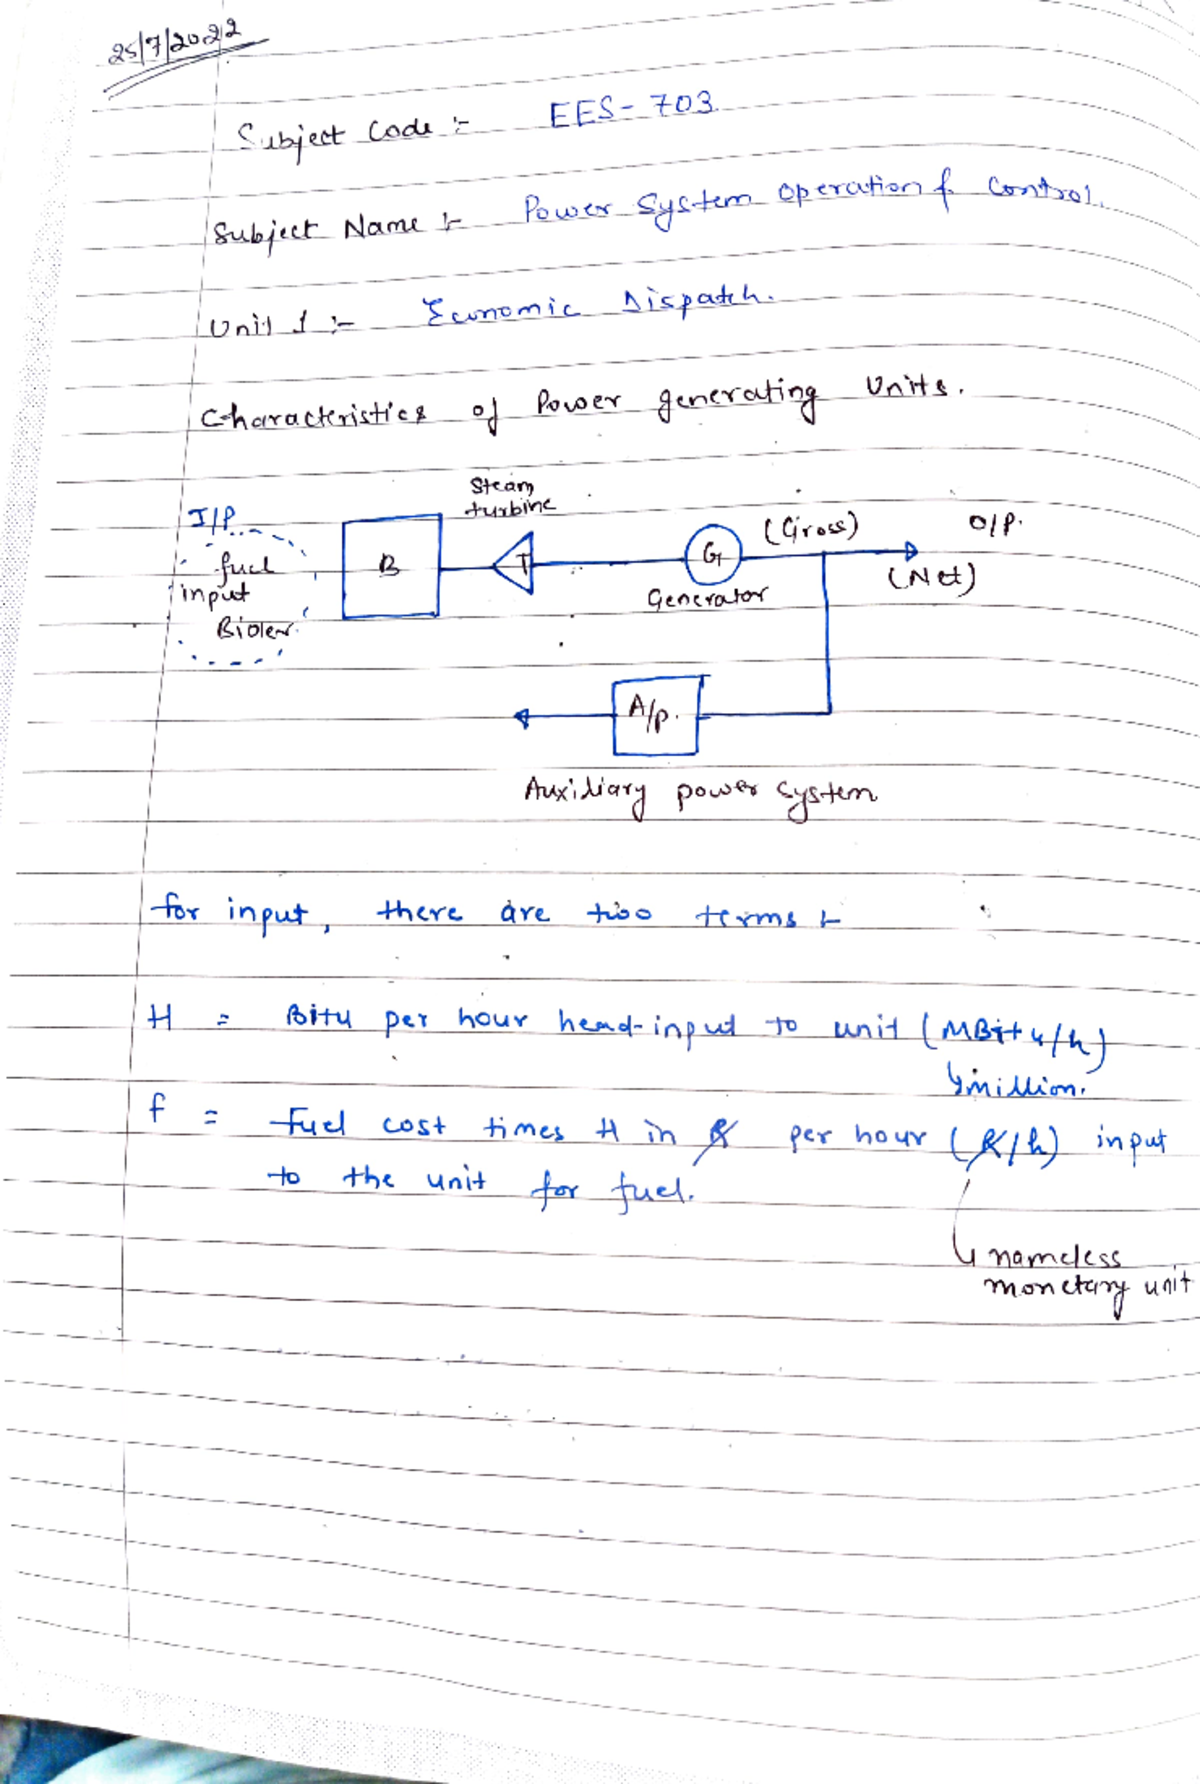 25/7/2022
Subject Code :- EES-703.
Subject Name :- Power System operation & Control.
Unit 1 :- Economic Dispatch.
Characteristics of Power generating Units.
Steam
turbine
I/P.
fuel
input
Bioler.
B
T
G
Generator
(Gross)
O/P.
(Net)
A/p.
Auxiliary power system
for input, there are two terms :-
H = Bitu per hour head-input to unit (MBitu/h)
million.
f = fuel cost times H in R per hour (R/h) input
to the unit for fuel.
nameless
monetary unit